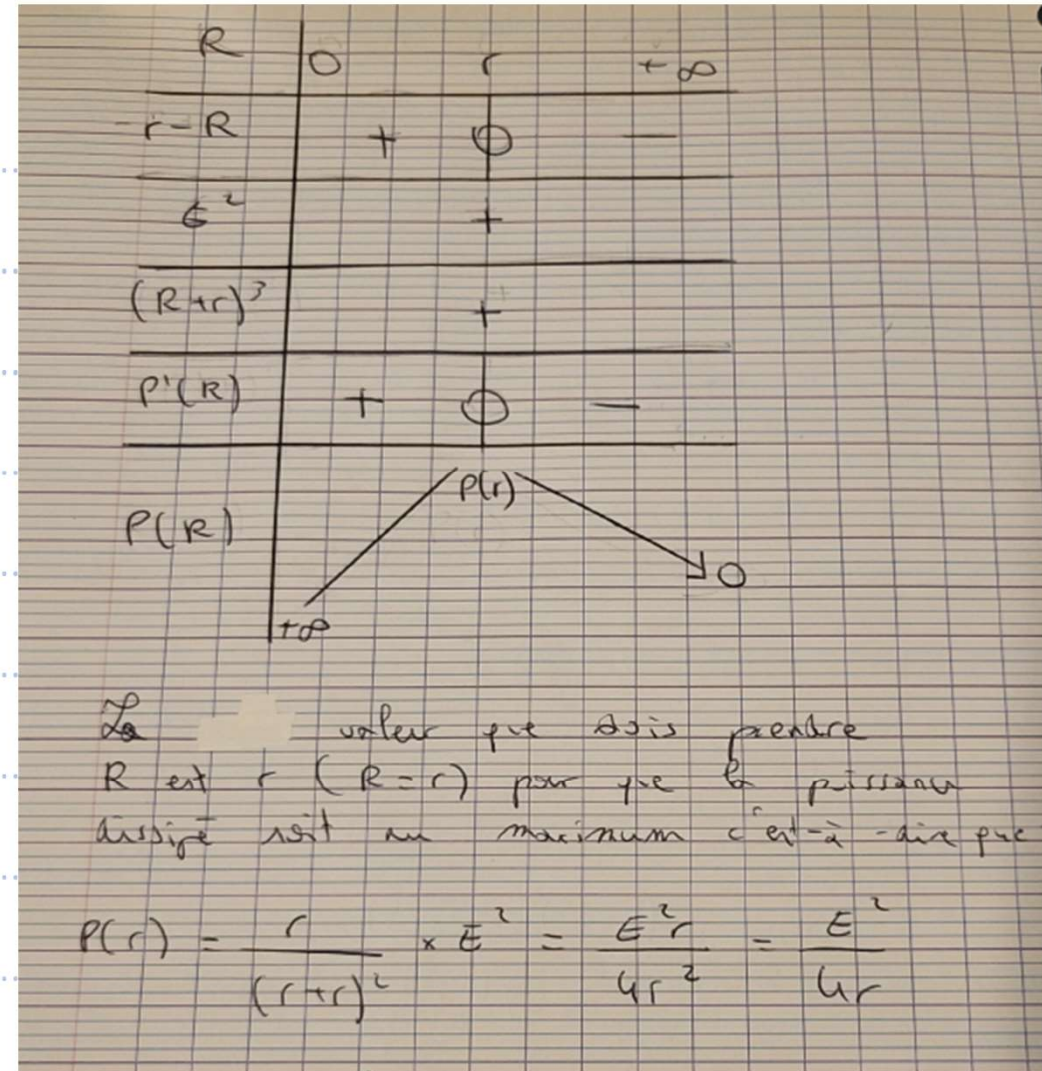 R 0 r +∞
r-R + 0 -
E² +
(R+r)³ +
P'(R) + 0 -
P(r)
P(R) 0
+∞
La valeur que dois prendre
R est r (R=r) pour que la puissance
dissipé soit au maximum c'est-à-dire que
P(r) = r/(r+r)² × E² = E²r/4r² = E²/4r